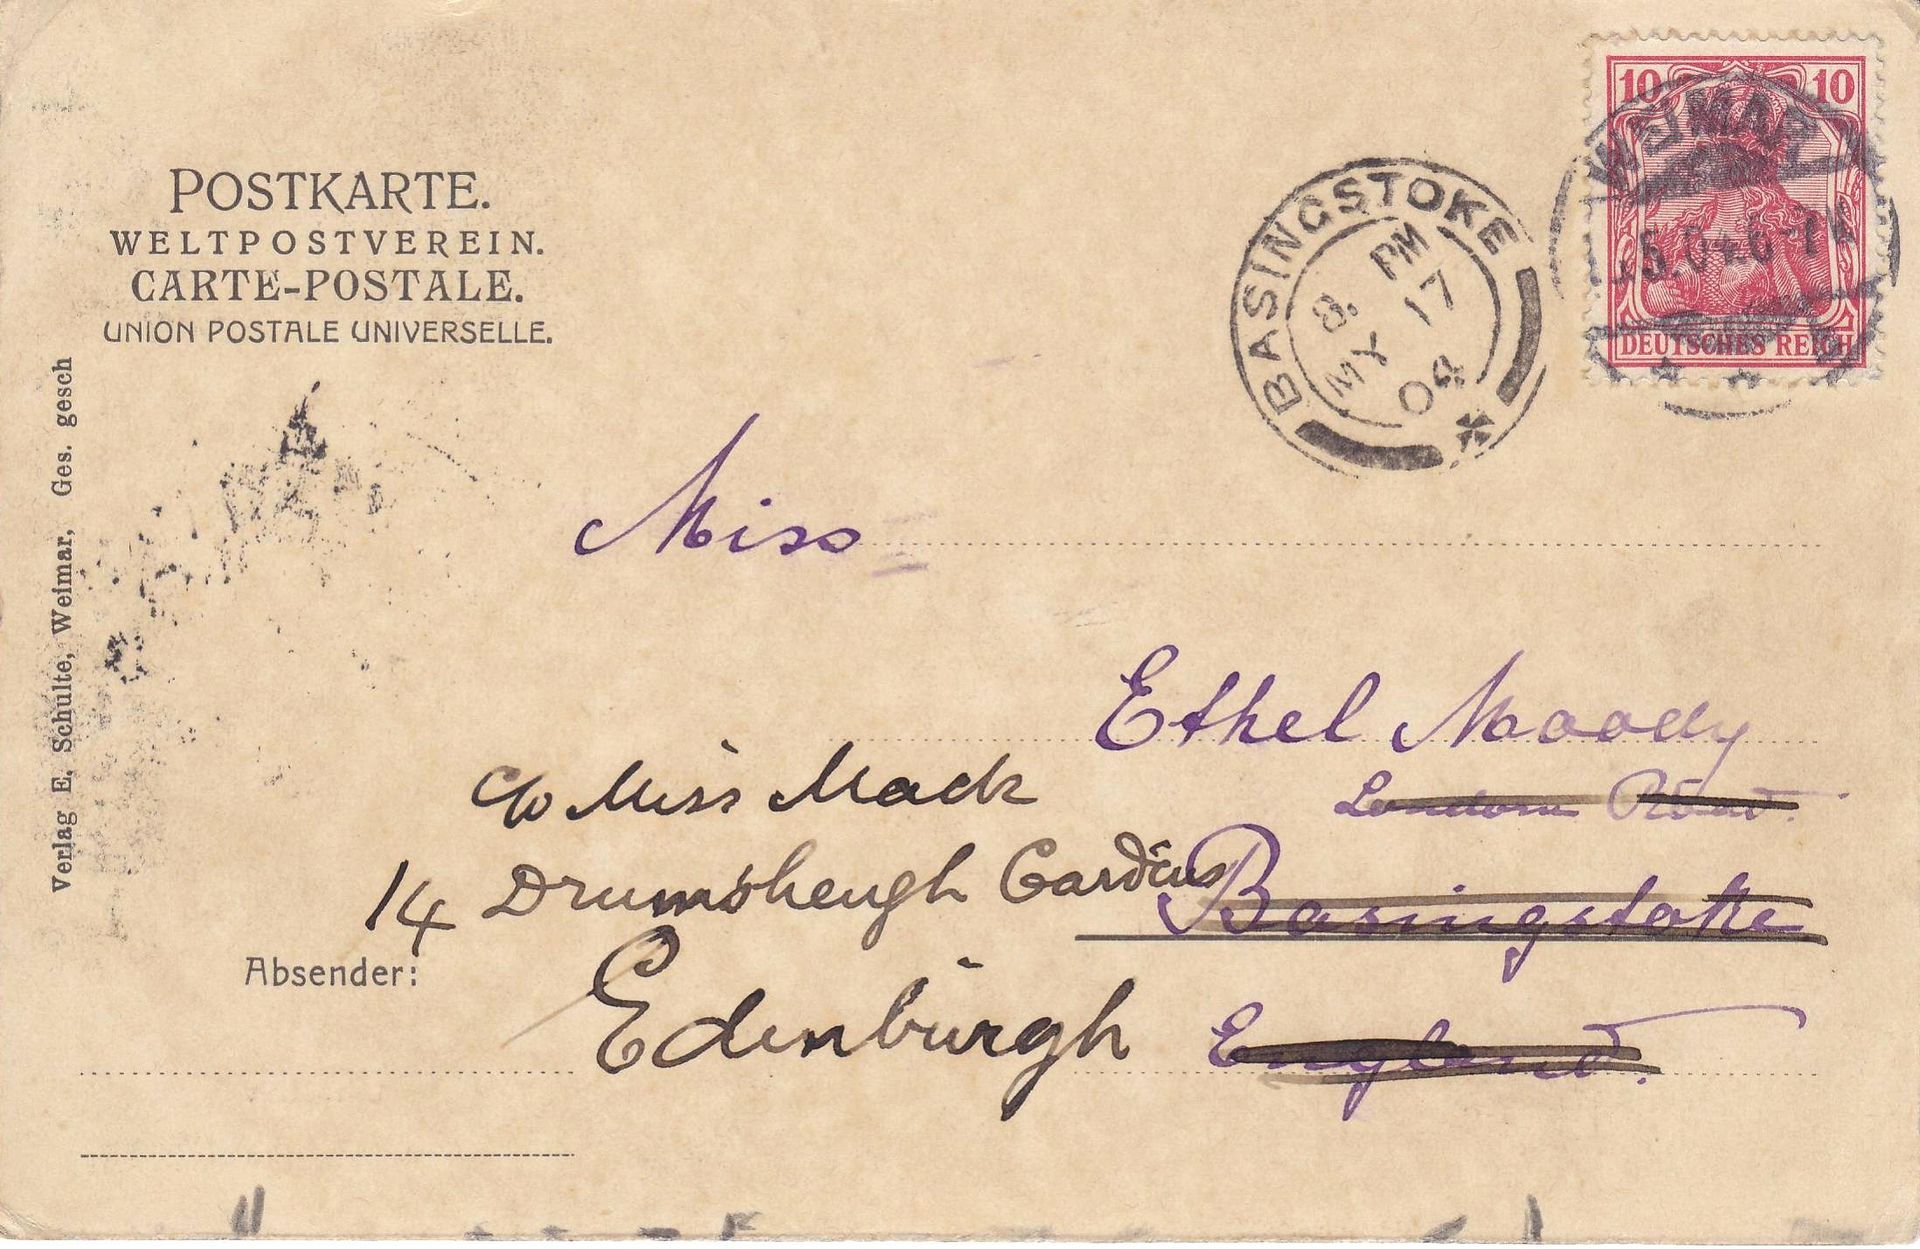 POSTKARTE.
WELTPOSTVEREIN.
CARTE-POSTALE.
UNION POSTALE UNIVERSELLE.
Verlag E. Schulte, Weimar, Ges. gesch
10 10
WEIMAR
5.04 6-7
DEUTSCHES REICH
BASINGSTOKE
8. PM
MY 17
04
Miss
Ethel Moody
London Road.
Basingstoke
England.
c/o Miss Mack
14 Drumsheugh Gardens
Edinburgh
Absender: